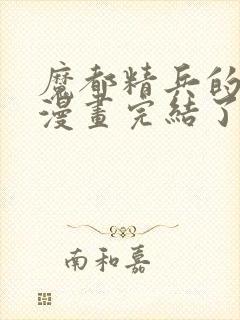 魔都精兵的
漫畫完結了
南和嘉